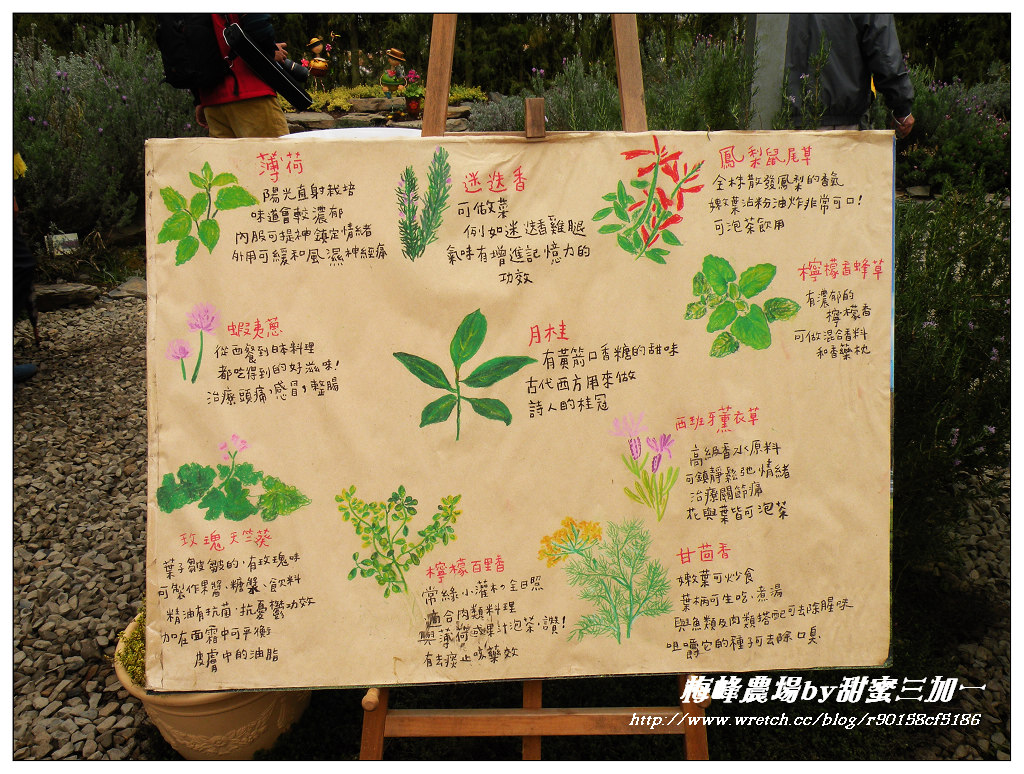 薄荷
陽光直射栽培
味道會較濃郁
內服可提神鎮定情緒
外用可緩和風濕神經痛
迷迭香
可做菜
例如迷迭香雞腿
氣味有增進記憶力的
功效
鳳梨鼠尾草
全株散發鳳梨的香氣
嫩葉沾粉油炸非常可口!
可泡茶飲用
檸檬香蜂草
有濃郁的
檸檬香
可做混合香料
和香藥枕
蝦夷蔥
從西餐到日本料理
都吃得到的好滋味!
治療頭痛,感冒,整腸
月桂
有黃箭口香糖的甜味
古代西方用來做
詩人的桂冠
西班牙薰衣草
高級香水原料
可鎮靜鬆弛情緒
治療關節痛
花與葉皆可泡茶
玫瑰天竺葵
葉子皺皺的,有玫瑰味
可製作果醬、糖漿、飲料
精油有抗菌、抗憂鬱功效
加在面霜中可平衡
皮膚中的油脂
檸檬百里香
常綠小灌木,全日照
適合肉類料理
與薄荷或果汁泡茶,讚!
有去痰止咳藥效
甘茴香
嫩葉可炒食
葉柄可生吃、煮湯
與魚類及肉類搭配可去除腥味
咀嚼它的種子可去除口臭
梅峰農場by甜蜜三加一
http://www.wretch.cc/blog/r90158cf5186